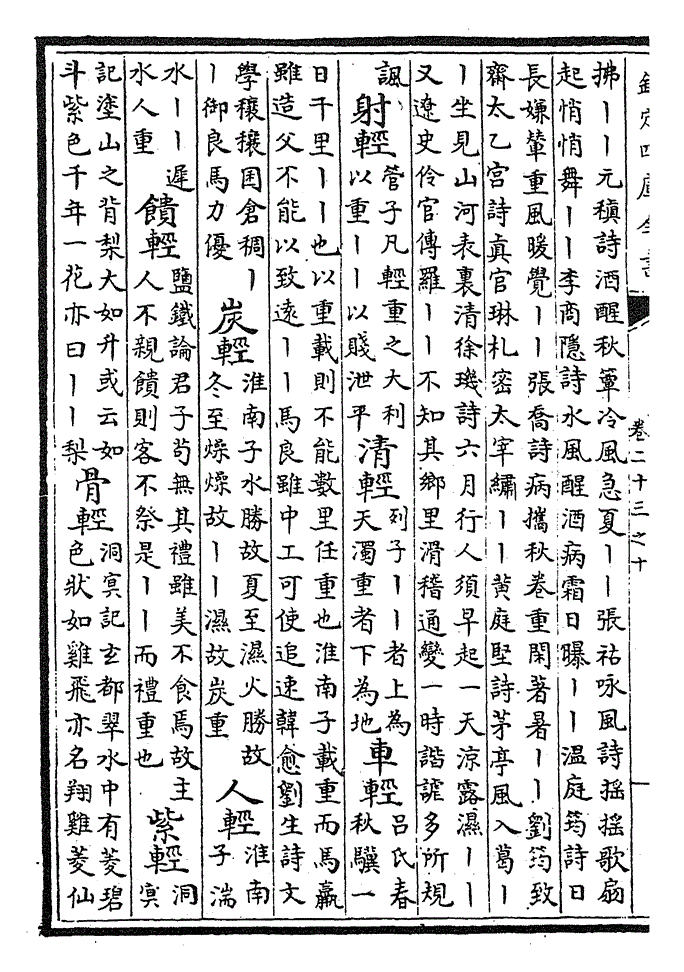 欽定四庫全書
卷二十三之十
拂丨丨元稹詩酒醒秋簟冷風急夏丨丨張祜咏風詩摇摇歌扇
起悄悄舞丨丨李商隠詩水風醒酒病霜日曝丨丨溫庭筠詩日
長嫌輦重風暖覺丨丨張喬詩病攜秋卷重閑著暑丨丨劉筠致
齋太乙宮詩真官琳札密太宰繡丨丨黄庭堅詩茅亭風入葛丨
丨坐見山河表裏清徐璣詩六月行人須早起一天涼露濕丨丨
又遼史伶官傳羅丨丨不知其鄉里滑稽通變一時諧謔多所規
諷
射輕
管子凡輕重之大利
以重丨丨以賤泄平
清輕
列子丨丨者上為
天濁重者下為地
車輕
吕氏春
秋驥一
日千里丨丨也以重載則不能數里任重也淮南子載重而馬羸
雖造父不能以致逺丨丨馬良雖中工可使追速韓愈劉生詩文
學穰穰囷倉稠丨
丨御良馬力優
炭輕
淮南子水勝故夏至濕火勝故
冬至燥燥故丨丨濕故炭重
人輕
淮南
子湍
水丨丨遲
水人重
饋輕
鹽鐵論君子苟無其禮雖美不食焉故主
人不親饋則客不祭是丨丨而禮重也
紫輕
洞
冥
記塗山之背梨大如升或云如
斗紫色千年一花亦曰丨丨梨
骨輕
洞冥記玄都翠水中有菱碧
色狀如雞飛亦名翔雞菱仙